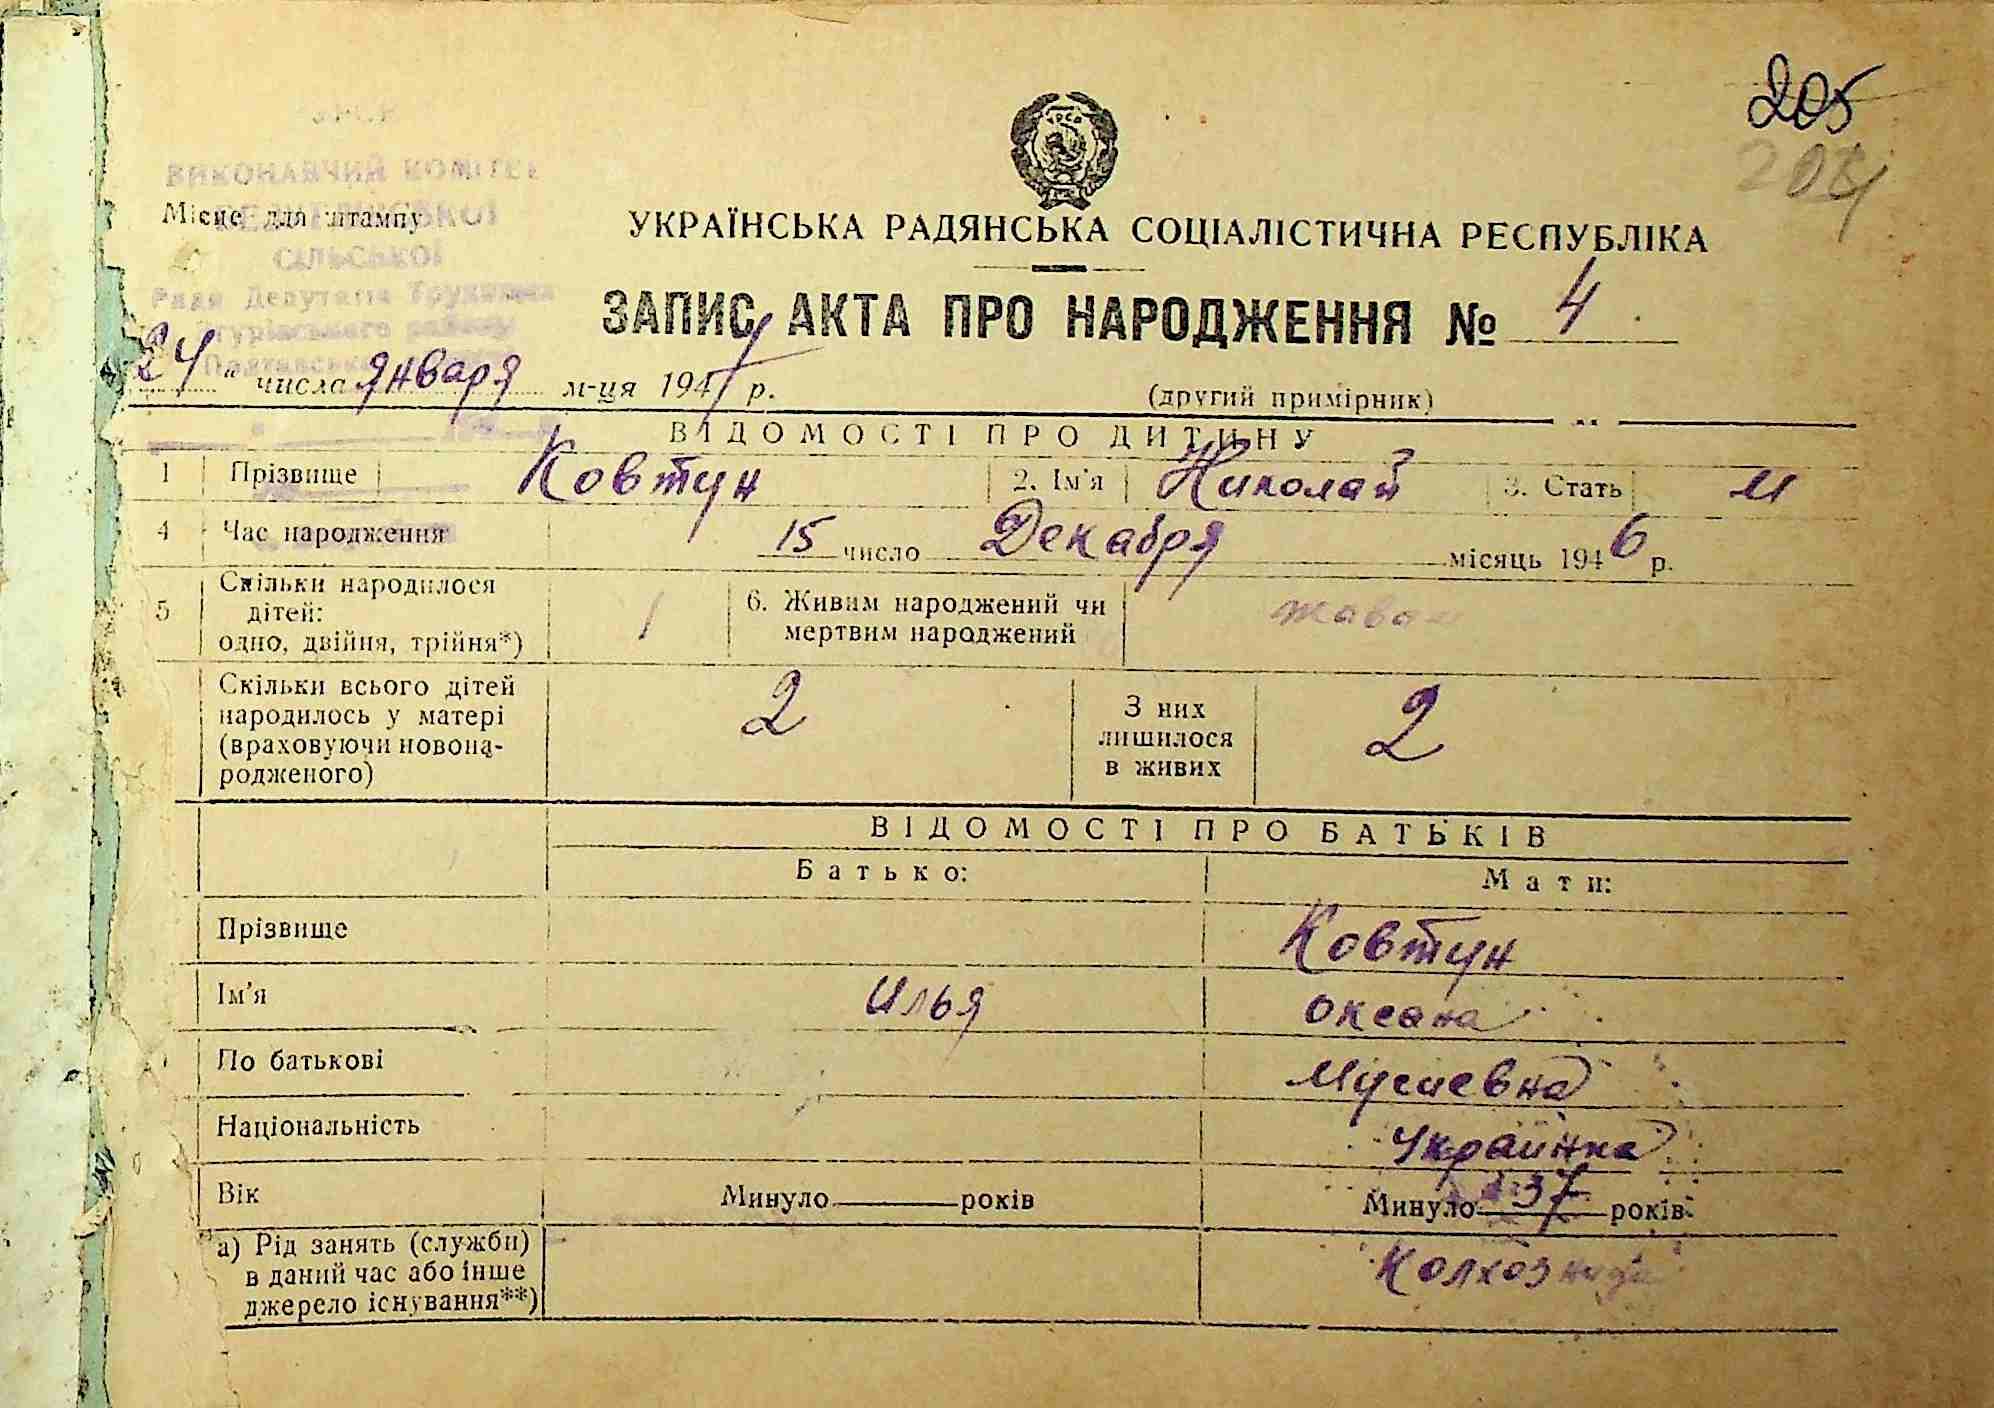 205
204
ВИКОНАВЧИЙ КОМІТЕТ
Місце для штампу
СІЛЬСЬКОЇ
Ради Депутатів Трудящих
району
УКРАЇНСЬКА РАДЯНСЬКА СОЦІАЛІСТИЧНА РЕСПУБЛІКА
ЗАПИС АКТА ПРО НАРОДЖЕННЯ № 4
24 " числа января м-ця 1947 р.
(другий примірник)
ВІДОМОСТІ ПРО ДИТИНУ
1 Прізвище Ковтун 2. Ім'я Николай 3. Стать М
4 Час народження 15 число Декабря місяць 1946 р.
5 Скільки народилося дітей: одно, двійня, трійня*) 1 6. Живим народжений чи мертвим народжений
Скільки всього дітей народилось у матері (враховуючи новонародженого) 2 З них лишилося в живих 2
ВІДОМОСТІ ПРО БАТЬКІВ
Батько: Мати:
Прізвище Ковтун
Ім'я Илья Оксана
По батькові Мусиевна
Національність Украинка
Вік Минуло років Минуло 37 років
а) Рід занять (служби) в даний час або інше джерело існування**) Колхозница